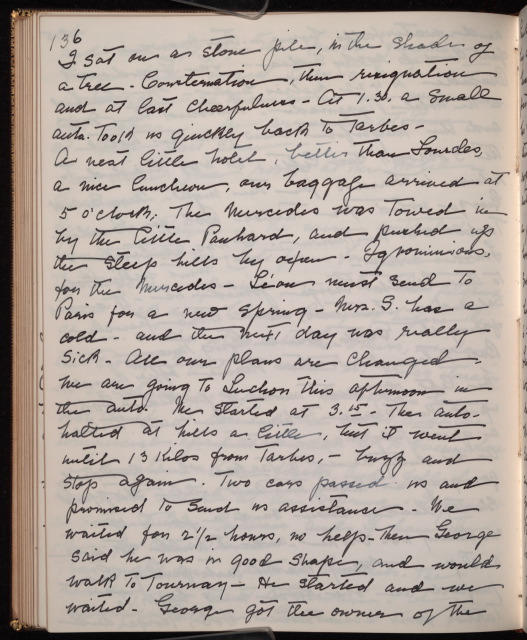 136
I sat on a stone pile, in the shade of
a tree - Consternation, then resignation
and at last cheerfulness - At 1.30. a small
auto. took us quickly back to Tarbes -
A neat little hotel, better than Lourdes,
a nice luncheon, our baggage arrived at
5 o'clock, The Mercedes was towed in
by the little Panhard, and pushed up
the steep hills by oxen - Ignominious,
for the Mercedes - Léon must send to
Paris for a new spring - Mrs. S. has a
cold - and the next day was really
sick - All our plans are changed -
We are going to Luchon this afternoon in
the auto. We started at 3.15 - The auto-
halted at hills a little, but it went
until 13 kilos from Tarbes, - buzz and
stop again. Two cars passed us and
promised to send us assistance - We
waited for 2 1/2 hours, no help - then George
said he was in good shape, and would
walk to Tournay - He started and we
waited - George got the owner of the